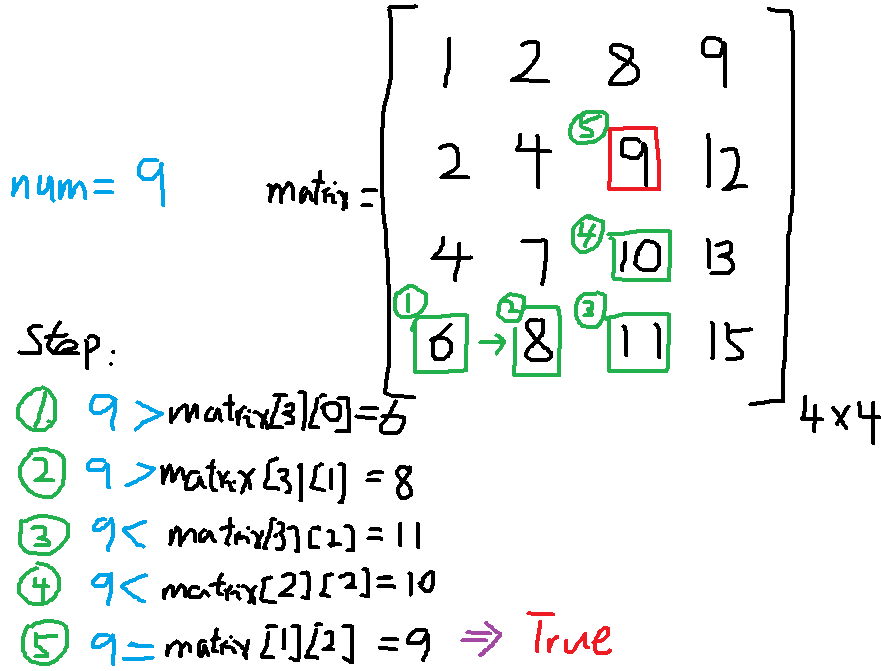 1 2 8 9
⑤
num = 9 matrix = 2 4 9 12
④
4 7 10 13
① ② ③
6 → 8 11 15
4 x 4
Step:
① 9 > matrix[3][0] = 6
② 9 > matrix[3][1] = 8
③ 9 < matrix[3][2] = 11
④ 9 < matrix[2][2] = 10
⑤ 9 = matrix[1][2] = 9 ⇒ True